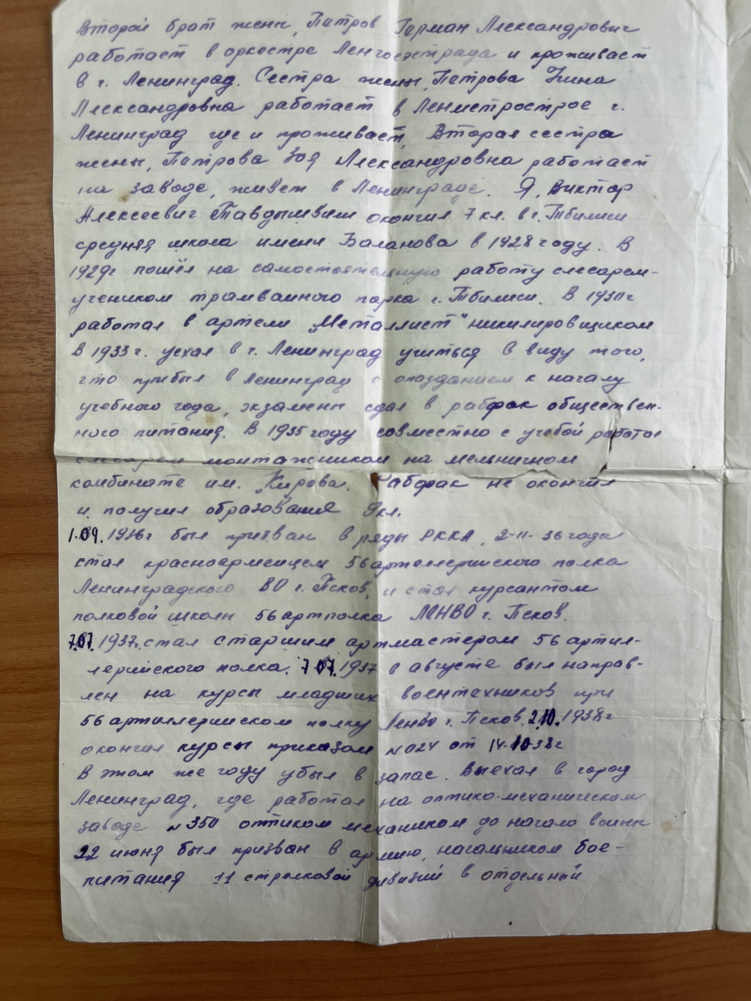 Второй брат жены, Петров Герман Александрович
работает в оркестре Ленгосэстрада и проживает
в г. Ленинград. Сестра жены, Петрова Нина
Александровна работает в Ленметрострое г.
Ленинград где и проживает, Вторая сестра
жены, Петрова Зоя Александровна работает
на заводе, живет в Ленинграде. Я, Виктор
Алексеевич окончил 7 кл. в г. Тбилиси
средняя школа имени в 1928 году. В
1929г пошёл на самостоятельную работу слесарем-
учеником трамвайного парка г. Тбилиси. В 1930г
работал в артели „Металлист" никилировщиком
В 1933 г. уехал в г. Ленинград учиться в виду того,
что прибыл в Ленинград с опозданием к началу
учебного года, экзамены сдал в рабфак обществен-
ного питания. В 1935 году совместно с учебой работал
слесарем монтажником на мельничном
комбинате им. Кирова. Рабфак не окончил
и получил образование 9кл.
1.09.1936г был призван в ряды РККА, 2-11-36 года
стал красноармейцем 56 артиллерийского полка
Ленинградского ВО г. Псков, и стал курсантом
полковой школы 56 артполка ЛЕНВО г. Псков.
7.07.1937г. стал старшим артмастером 56 артил-
лерийского полка. 7.07.1937 в августе был направ-
лен на курсы младших воентехников при
56 артиллерийском полку Ленво г. Псков. 2.10.1938г
окончил курсы приказом №024 от 14.10.38г
В этом же году убыл в запас. Выехал в город
Ленинград, где работал на оптико-механическом
заводе №350 оптиком механиком до начало войны
22 июня был призван в армию, начальником бое-
питания 11 стрелковой дивизии в отдельный